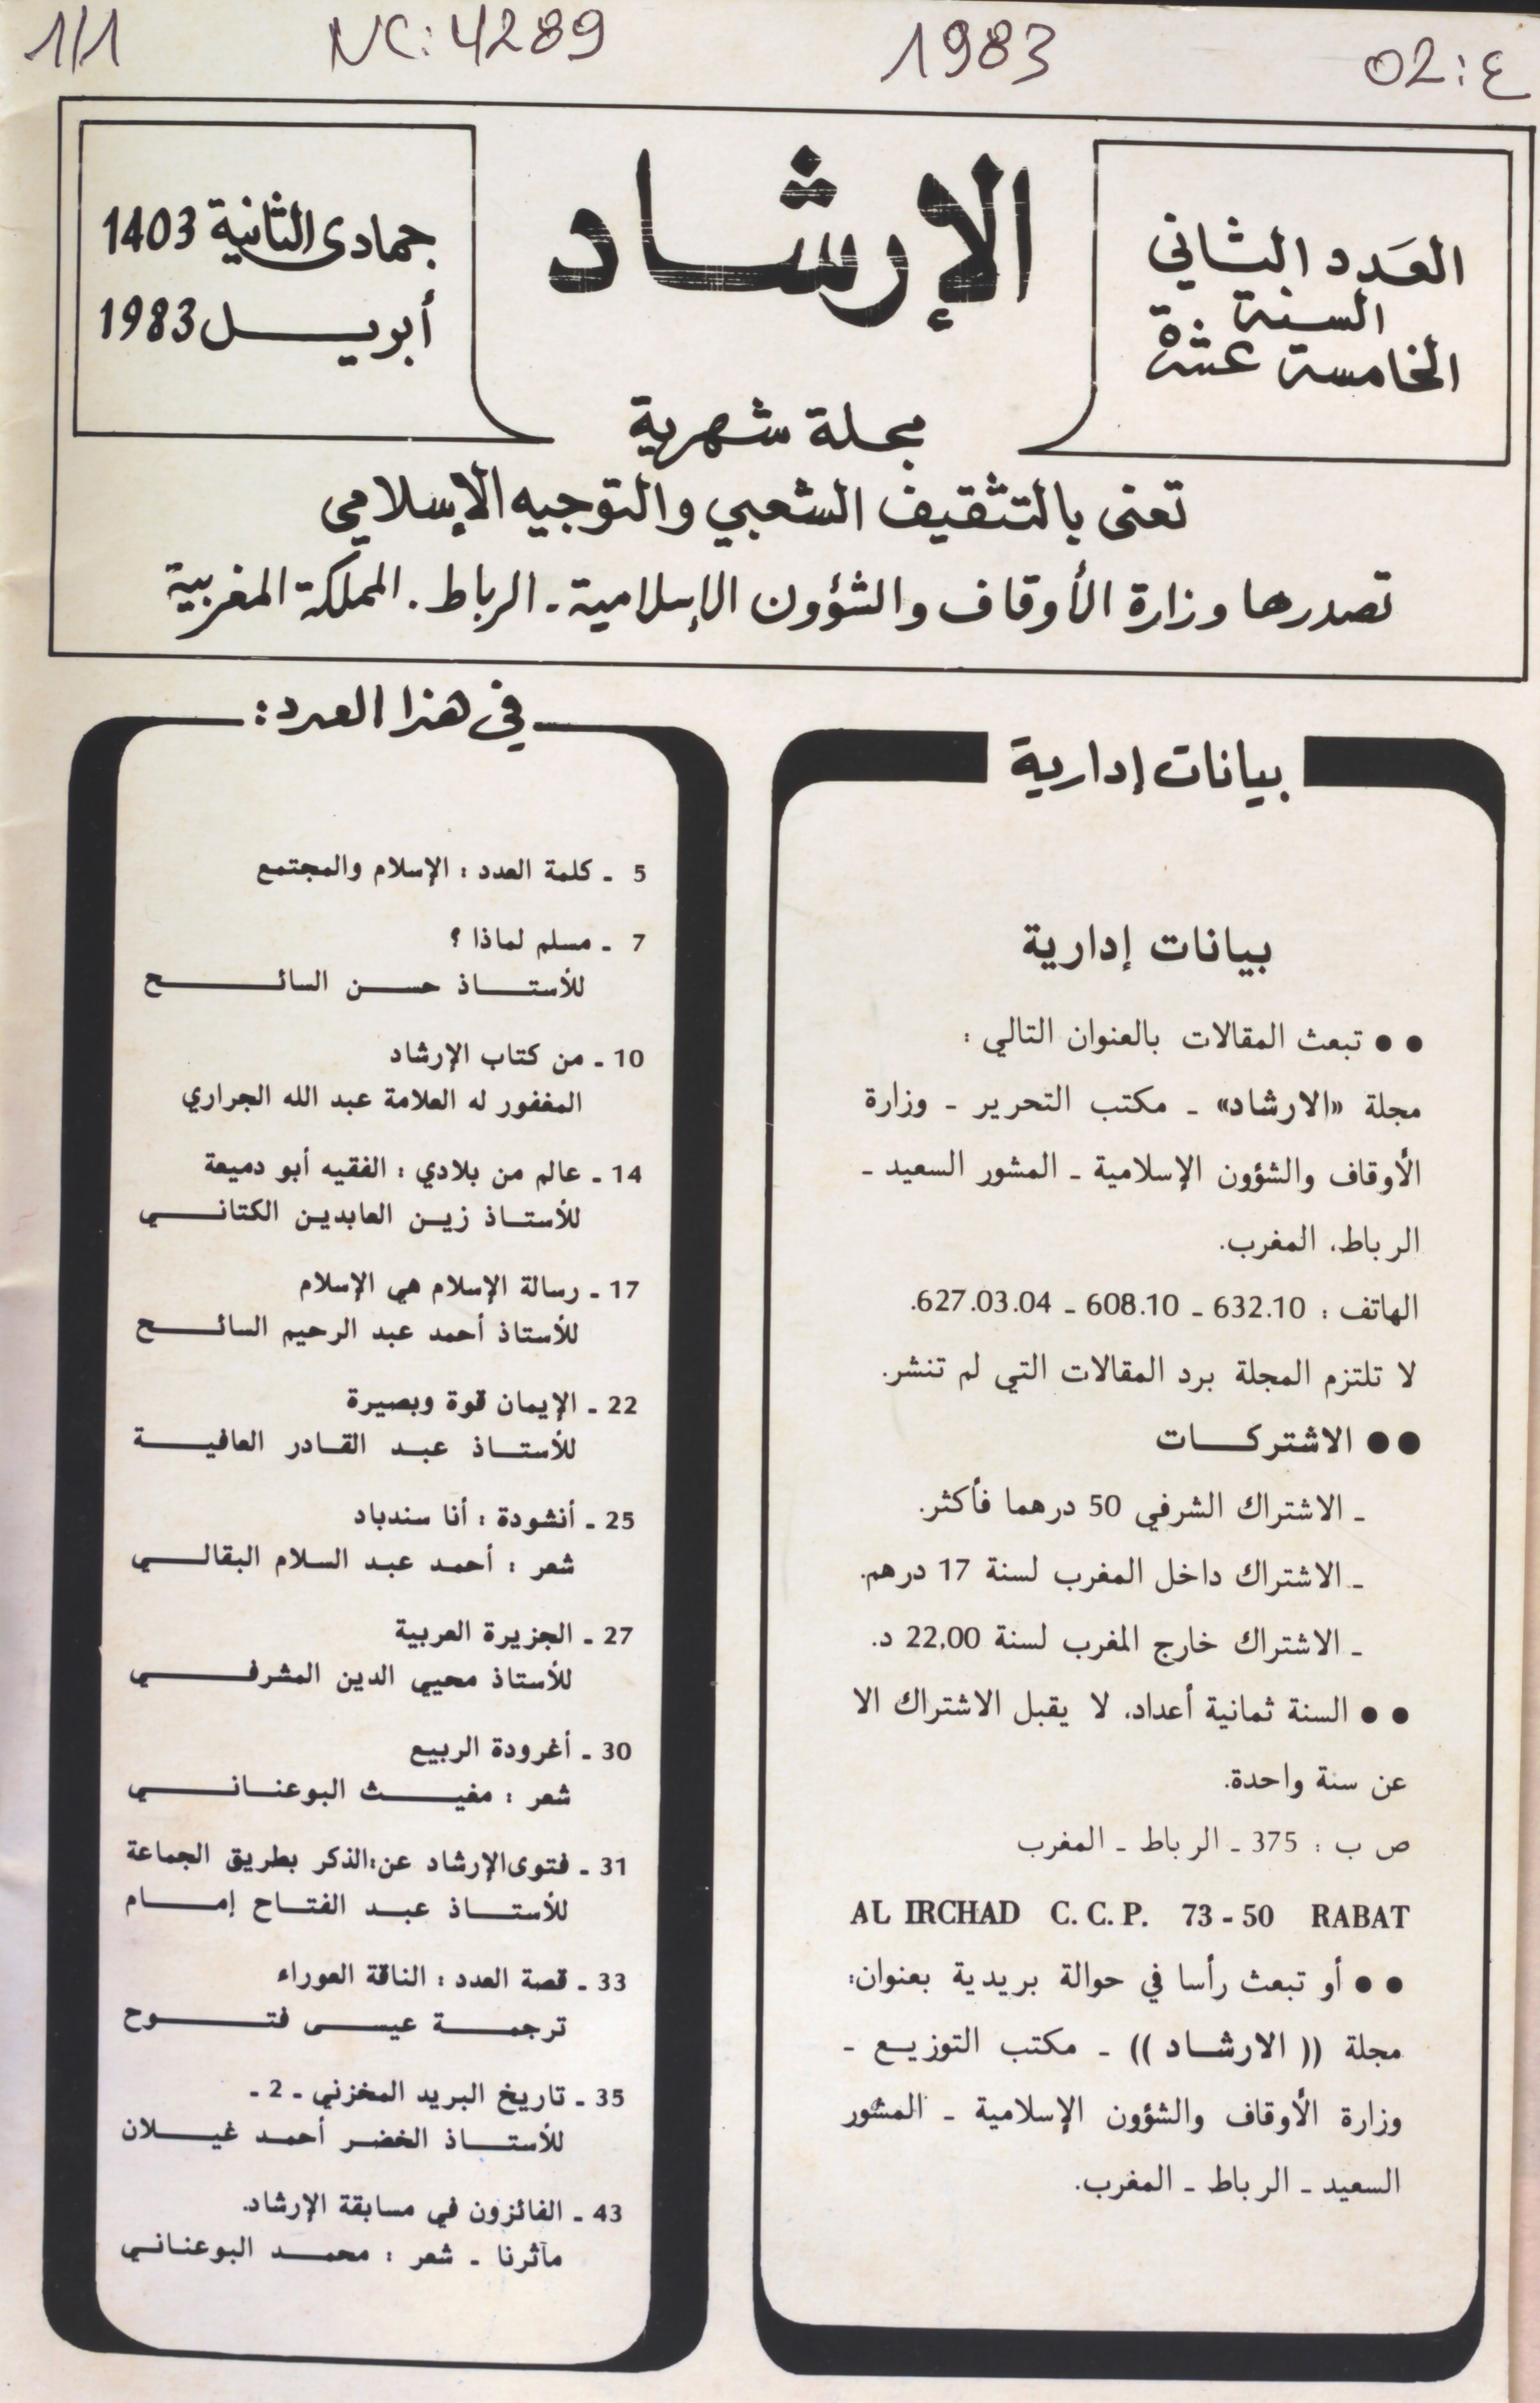 02:ع
1983
NC:4289
1/1
العدد الثاني
السنة
الخامسة عشرة
الإرشاد
جمادى الثانية 1403
أبريل 1983
مجلة شهرية
تعنى بالتثقيف الشعبي والتوجيه الإسلامي
تصدرها وزارة الأوقاف والشؤون الإسلامية ـ الرباط . المملكة المغربية
بيانات إدارية
بيانات إدارية
●● تبعث المقالات بالعنوان التالي :
مجلة «الارشاد» ـ مكتب التحرير ـ وزارة
الأوقاف والشؤون الإسلامية ـ المشور السعيد ـ
الرباط، المغرب.
الهاتف : 632.10 ـ 608.10 ـ 627.03.04.
لا تلتزم المجلة برد المقالات التي لم تنشر.
●● الاشتركات
ـ الاشتراك الشرفي 50 درهما فأكثر.
ـ الاشتراك داخل المغرب لسنة 17 درهم.
ـ الاشتراك خارج المغرب لسنة 22,00 د.
●● السنة ثمانية أعداد، لا يقبل الاشتراك الا
عن سنة واحدة.
ص ب : 375 ـ الرباط ـ المغرب
AL IRCHAD C. C. P. 73 - 50 RABAT
●● أو تبعث رأسا في حوالة بريدية بعنوان:
مجلة (( الارشاد )) ـ مكتب التوزيع ـ
وزارة الأوقاف والشؤون الإسلامية ـ المشور
السعيد ـ الرباط ـ المغرب.
في هذا العدد :
5 ـ كلمة العدد : الإسلام والمجتمع
7 ـ مسلم لماذا ؟
للأستاذ حسن السائح
10 ـ من كتاب الإرشاد
المغفور له العلامة عبد الله الجراري
14 ـ عالم من بلادي : الفقيه أبو دميعة
للأستاذ زين العابدين الكتاني
17 ـ رسالة الإسلام هي الإسلام
للأستاذ أحمد عبد الرحيم السائح
22 ـ الإيمان قوة وبصيرة
للأستاذ عبد القادر العافية
25 ـ أنشودة : أنا سندباد
شعر : أحمد عبد السلام البقالي
27 ـ الجزيرة العربية
للأستاذ محيي الدين المشرفي
30 ـ أغرودة الربيع
شعر : مغيث البوعناني
31 ـ فتوى الإرشاد عن:الذكر بطريق الجماعة
للأستاذ عبد الفتاح إمام
33 ـ قصة العدد : الناقة العوراء
ترجمة عيسى فتوح
35 ـ تاريخ البريد المخزني ـ 2 ـ
للأستاذ الخضر أحمد غيلان
43 ـ الفائزون في مسابقة الإرشاد.
مآثرنا ـ شعر : محمد البوعناني